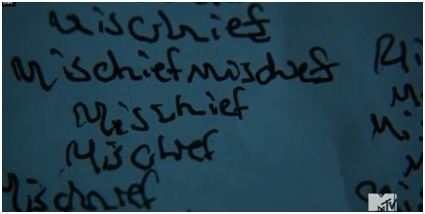 Mischief
Mischiefmischief
Mischief
Mischief
Mischief
Mi
M
Mi
M
Mis
MTV